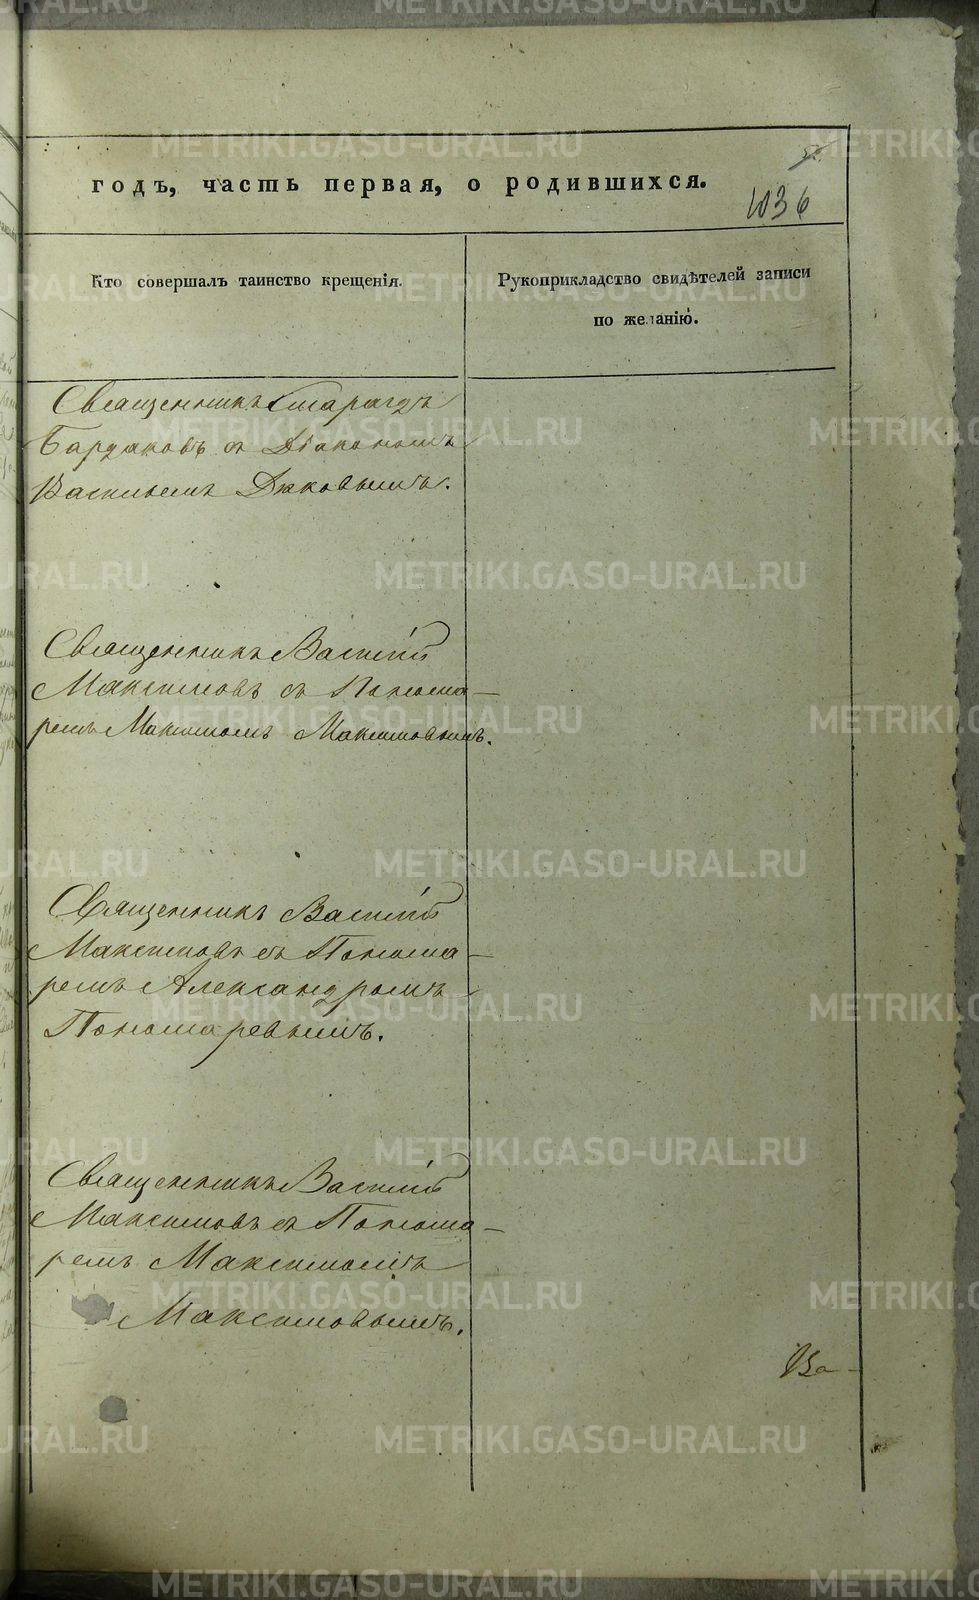 годъ, часть первая, о родившихся.
1036
Кто совершалъ таинство крещенія.
Рукоприкладство свидѣтелей записи
по желанію.
Священникъ Смарагдъ
Бардаковъ съ Діакономъ
Васильемъ Дековымъ.
Священникъ Василій
Максимовъ съ Понома-
ремъ Максимомъ Максимовымъ.
Священникъ Василій
Максимовъ съ Понома-
ремъ Александромъ
Пономаревымъ.
Священникъ Василій
Максимовъ съ Понома-
ремъ Максимомъ
Максимовымъ.
METRIKI.GASO-URAL.RU